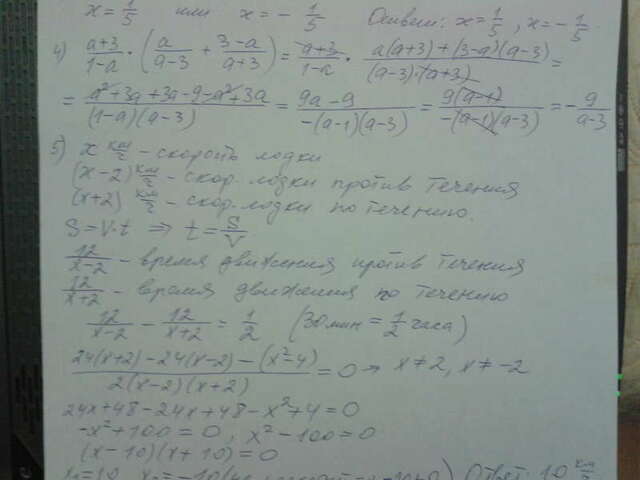 x = 1/5 или x = -1/5 Ответ: x = 1/5, x = -1/5
4) (a+3)/(1-a) · (a/(a-3) + (3-a)/(a+3)) = (a+3)/(1-a) · (a(a+3)+(3-a)(a-3))/((a-3)(a+3)) =
= (a²+3a+3a-9-a²+3a)/((1-a)(a-3)) = (9a-9)/(-(a-1)(a-3)) = 9(a-1)/(-(a-1)(a-3)) = -9/(a-3)
5) x км/ч - скорость лодки
(x-2) км/ч - скор. лодки против течения
(x+2) км/ч - скор. лодки по течению.
S = V·t ⇒ t = S/V
12/(x-2) - время движения против течения
12/(x+2) - время движения по течению
12/(x-2) - 12/(x+2) = 1/2 (30 мин = 1/2 часа)
(24(x+2) - 24(x-2) - (x²-4))/(2(x-2)(x+2)) = 0 → x ≠ 2, x ≠ -2
24x+48-24x+48-x²+4=0
-x²+100=0, x²-100=0
(x-10)(x+10)=0
x = 10 x₂ = -10 Ответ: 10 км/ч